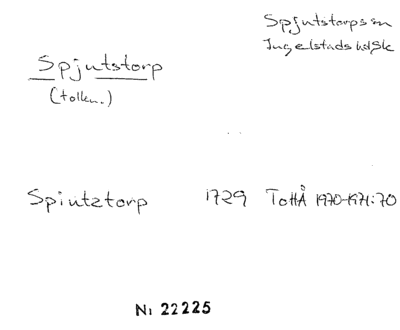 Spjutstorps sn
Ingelstads hd Sk
Spjutstorp
(tolkn.)
Spiutztorp 1729 ToHÅ 1970-1971:70
N: 22225